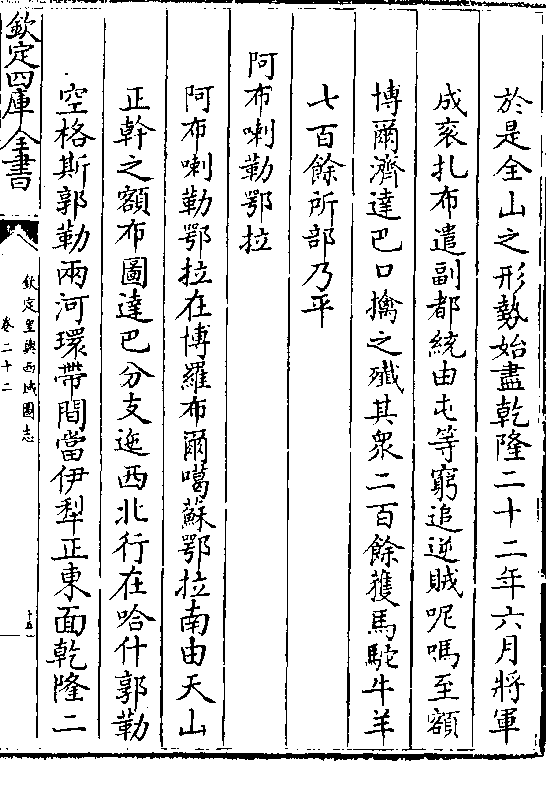 於是全山之形勢始盡乾隆二十二年六月將軍
成衮扎布遣副都統由屯等窮追逆賊呢嗎至額
博爾濟達巴口擒之殲其衆二百餘獲馬駝牛羊
七百餘所部乃平
阿布喇勒鄂拉
阿布喇勒鄂拉在博羅布爾噶蘇鄂拉南由天山
正幹之額布圖達巴分支迤西北行在哈什郭勒
空格斯郭勒兩河環帶間當伊犁正東面乾隆二
欽定四庫全書
欽定皇輿西域圖志
卷二十二